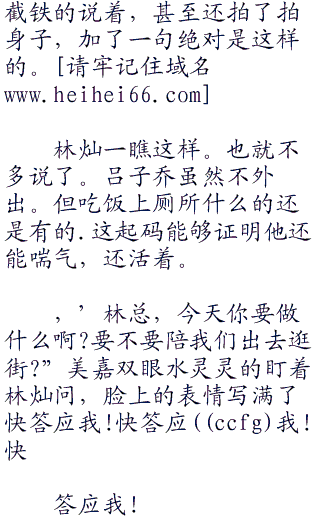 截铁的说着，甚至还拍了拍
身子，加了一句绝对是这样
的。[请牢记住域名
www.heihei66.com]
林灿一瞧这样。也就不
多说了。吕子乔虽然不外
出。但吃饭上厕所什么的还
是有的.这起码能够证明他还
能喘气，还活着。
，’林总，今天你要做
什么啊?要不要陪我们出去逛
街?”美嘉双眼水灵灵的盯着
林灿问，脸上的表情写满了
快答应我!快答应((ccfg)我!
快
答应我!